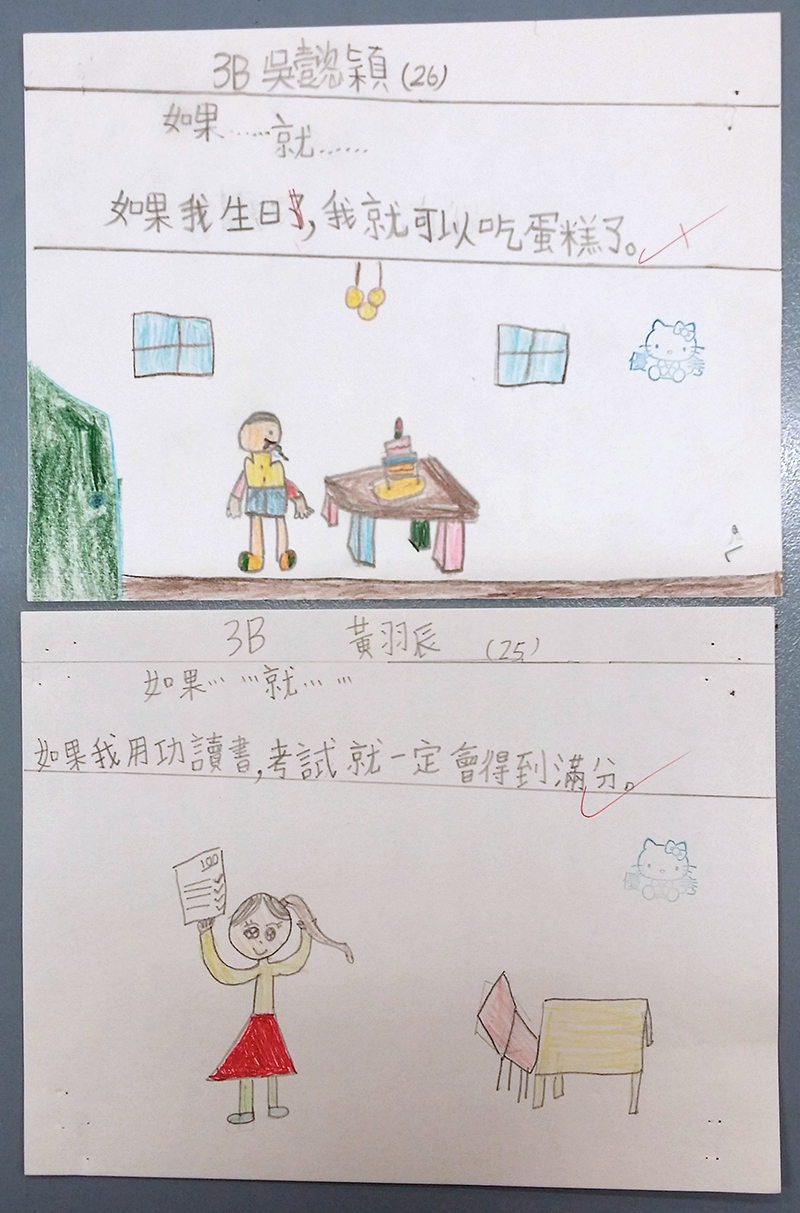 3B 吳懿穎 (26)
如果……就……
如果我生日了,我就可以吃蛋糕了。
優 秀
3B 黃羽辰 (25)
如果… …就… …
如果我用功讀書,考試就一定會得到滿分。
100
優 秀